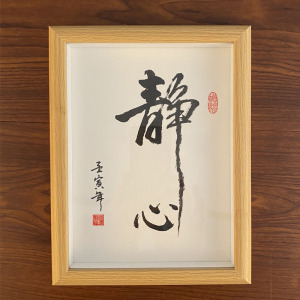 靜心
壬寅年